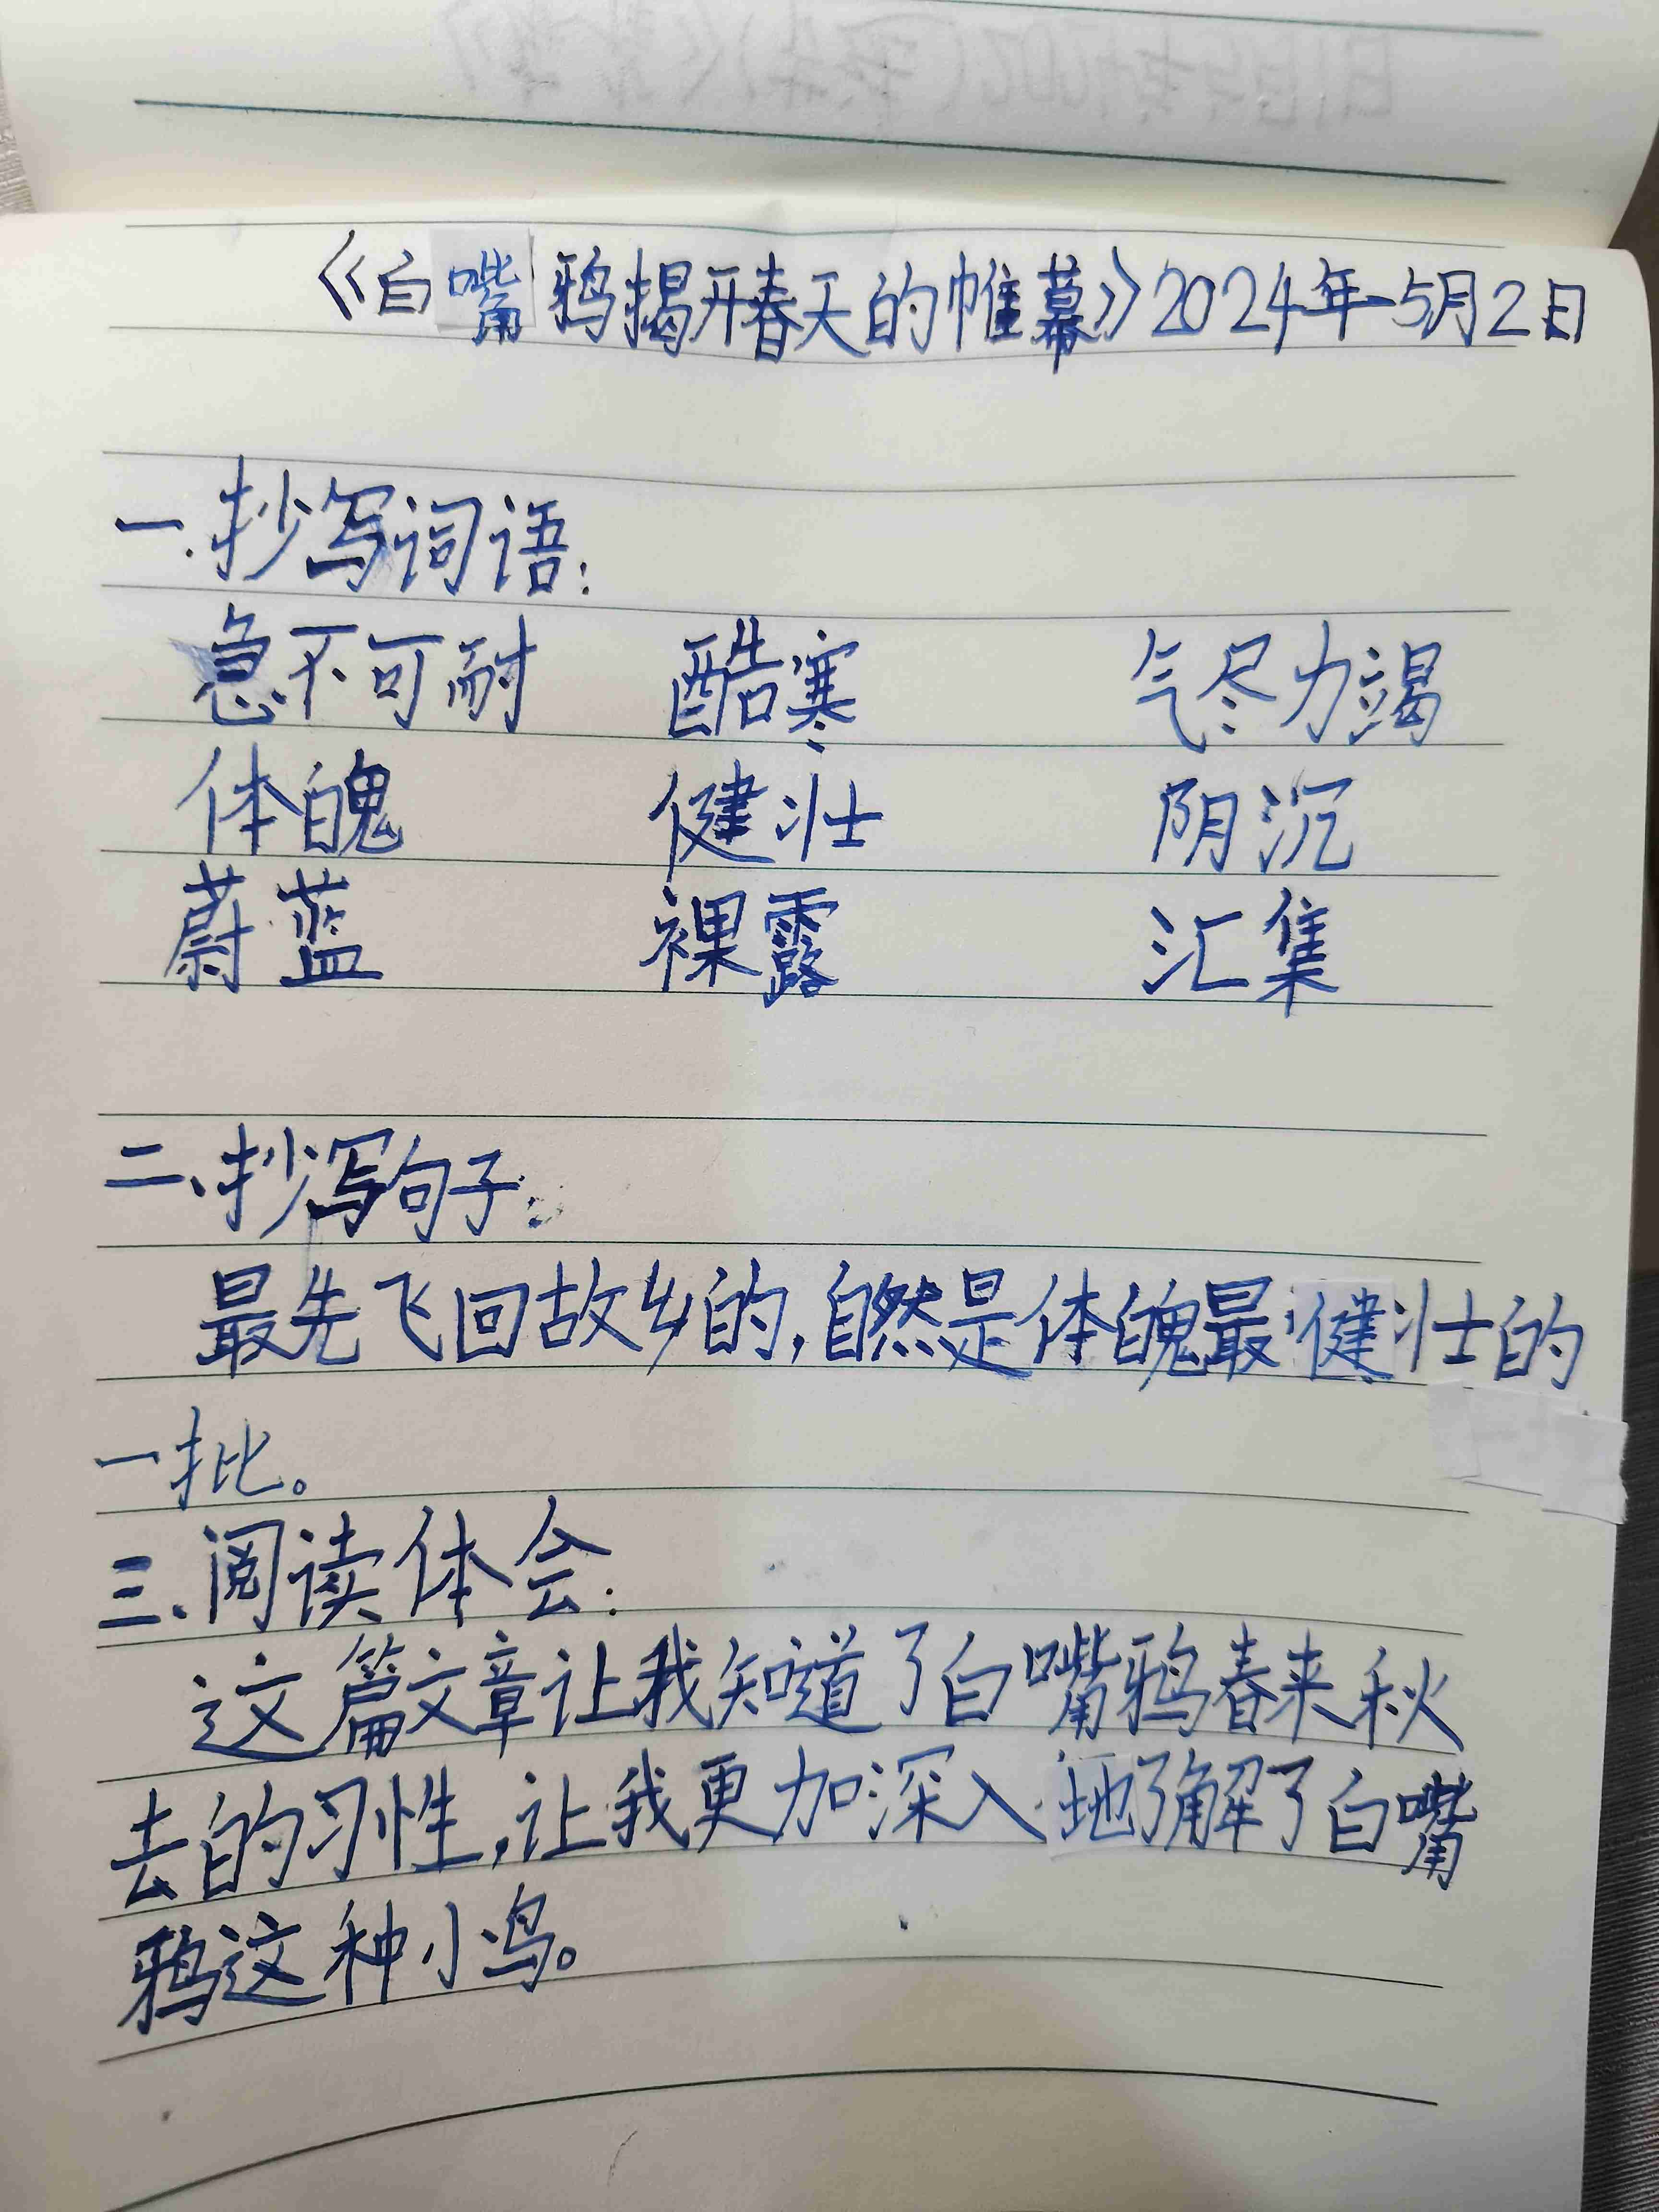 《白嘴鸦揭开春天的帷幕》2024年5月2日
一.抄写词语:
急不可耐 酷寒 气尽力竭
体魄 健壮 阴沉
蔚蓝 裸露 汇集
二、抄写句子:
最先飞回故乡的,自然是体魄最健壮的
一批。
三、阅读体会:
这篇文章让我知道了白嘴鸦春来秋
去的习性,让我更加深入地了解了白嘴
鸦这种小鸟。